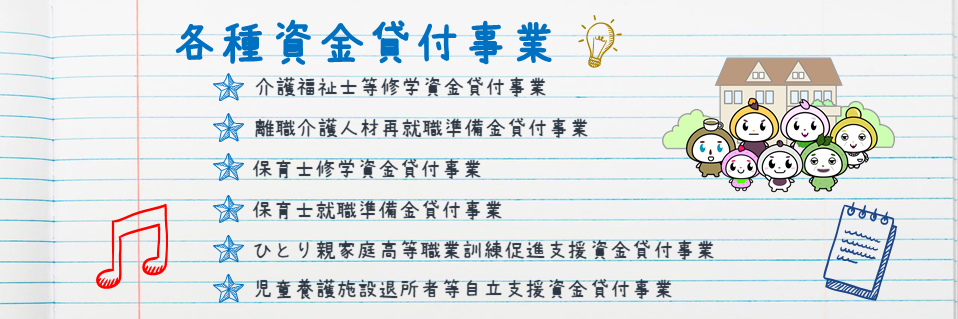 各種資金貸付事業
介護福祉士等修学資金貸付事業
離職介護人材再就職準備金貸付事業
保育士修学資金貸付事業
保育士就職準備金貸付事業
ひとり親家庭高等職業訓練促進支援資金貸付事業
児童養護施設退所者等自立支援資金貸付事業